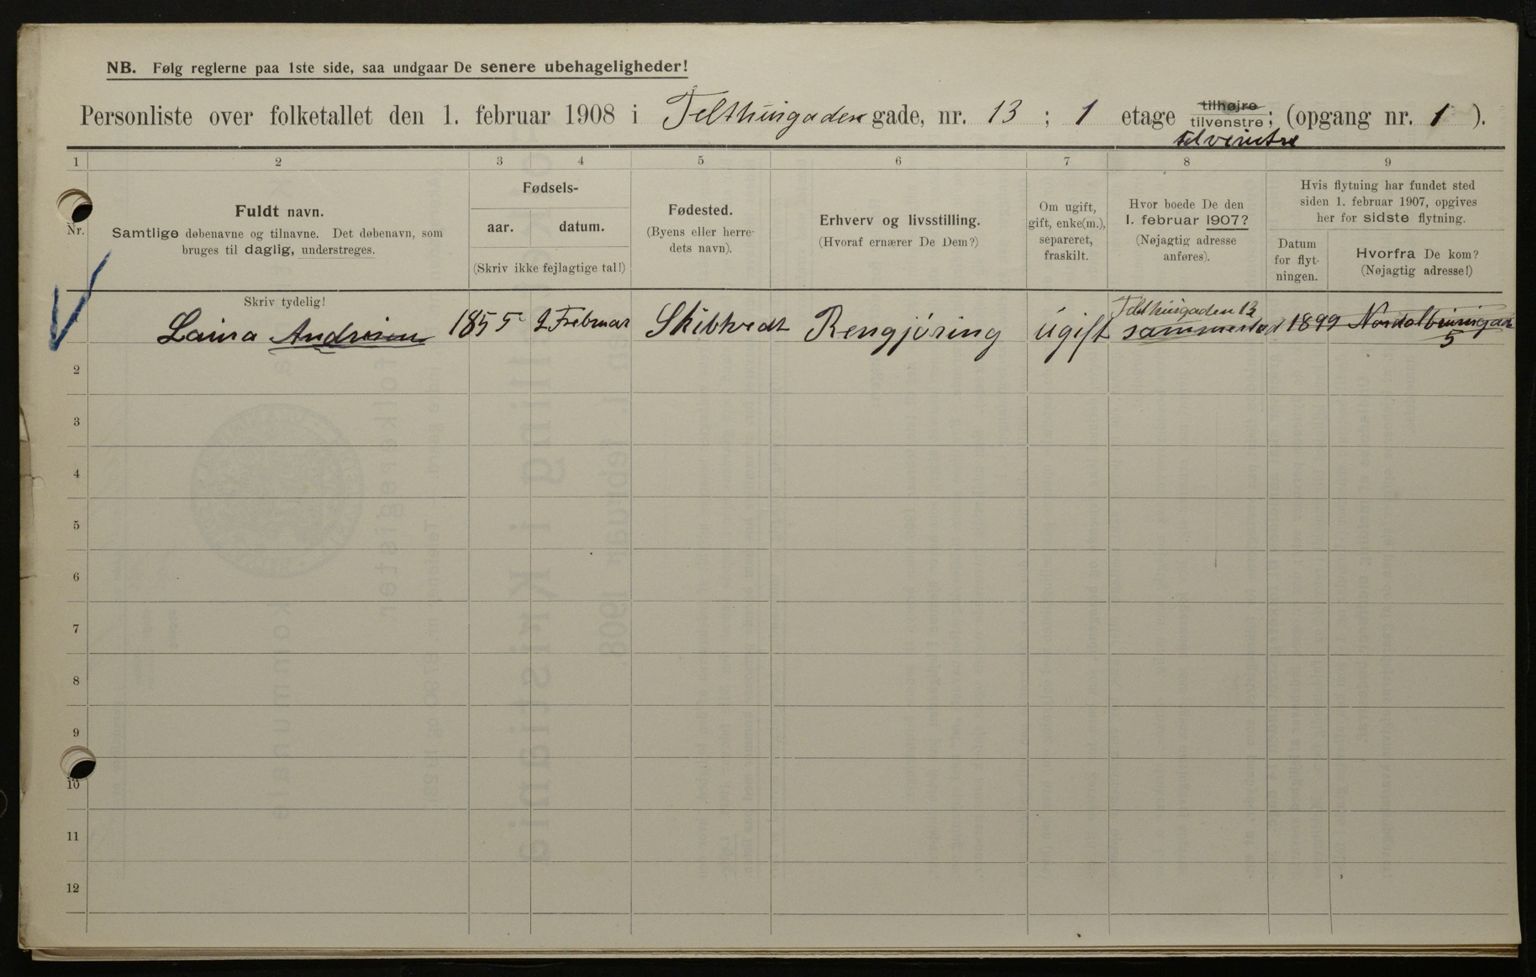 NB. Følg reglerne paa 1ste side, saa undgaar De senere ubehageligheder!
Personliste over folketallet den 1. februar 1908 i Telthusgaden gade, nr. 13 ; 1 etage tilhøjre tilvenstre; (opgang nr. 1 ).
tilvenstre
1 2 3 4 5 6 7 8 9
Nr.
Fuldt navn.
Samtlige døbenavne og tilnavne. Det døbenavn, som
bruges til daglig, understreges.
Fødsels-
aar. datum.
(Skriv ikke fejlagtige tal!)
Fødested.
(Byens eller herre-
dets navn).
Erhverv og livsstilling.
(Hvoraf ernærer De Dem?)
Om ugift,
gift, enke(m.),
separeret,
fraskilt.
Hvor boede De den
1. februar 1907?
(Nøjagtig adresse
anføres).
Hvis flytning har fundet sted
siden 1. februar 1907, opgives
her for sidste flytning.
Datum
for flyt-
ningen.
Hvorfra De kom?
(Nøjagtig adresse!)
Skriv tydelig!
Telthusgaden 13
Laura Andresen 1855 2 Februar Skibtvedt Rengjøring Ugift sammested 1899 Nordalbrunsgade
5
2
3
4
5
6
7
8
9
10
11
12